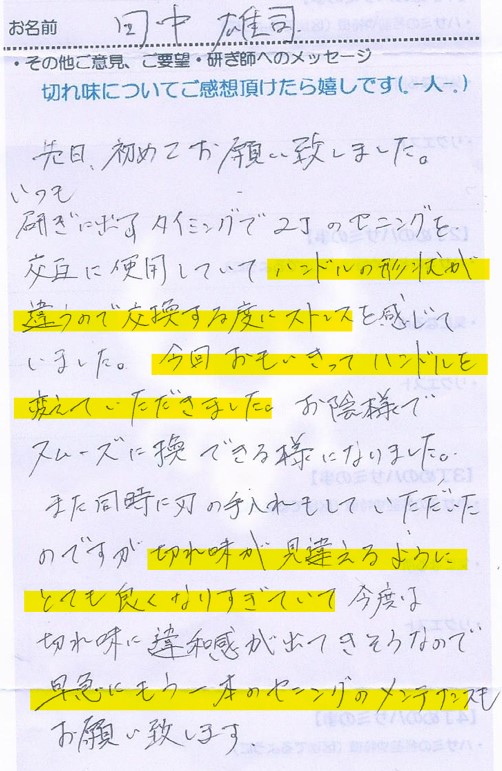 お名前 田中 雄司
・その他ご意見、ご要望・研ぎ師へのメッセージ
切れ味についてご感想頂けたら嬉しです(.-人-.)
先日、初めてお願い致しました。
いつも
研ぎに出すタイミングで2丁のセニングを
交互に使用していてハンドルの形状が
違うので交換する度にストレスを感じて
いました。今回おもいきってハンドルを
変えていただきました。お陰様で
スムーズに換できる様になりました。
また同時に刃の手入れもしていただいた
のですが切れ味が見違えるように
とても良くなりすぎていて今度は
切れ味に違和感が出てきそうなので
早急にもう一本のセニングのメンテナンスも
お願い致します.